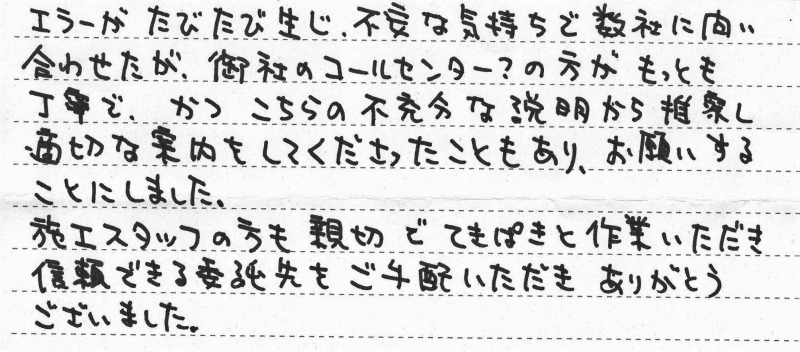 エラーが たびたび生じ、不安な気持ちで 数社に問い
合わせたが、御社のコールセンター?の方が もっとも
丁寧で、かつ こちらの不充分な説明から推察し
適切な案内をしてくださったこともあり、お願いする
ことにしました。
施工スタッフの方も 親切で てきぱきと作業いただき
信頼できる委託先を ご手配いただき ありがとう
ございました。